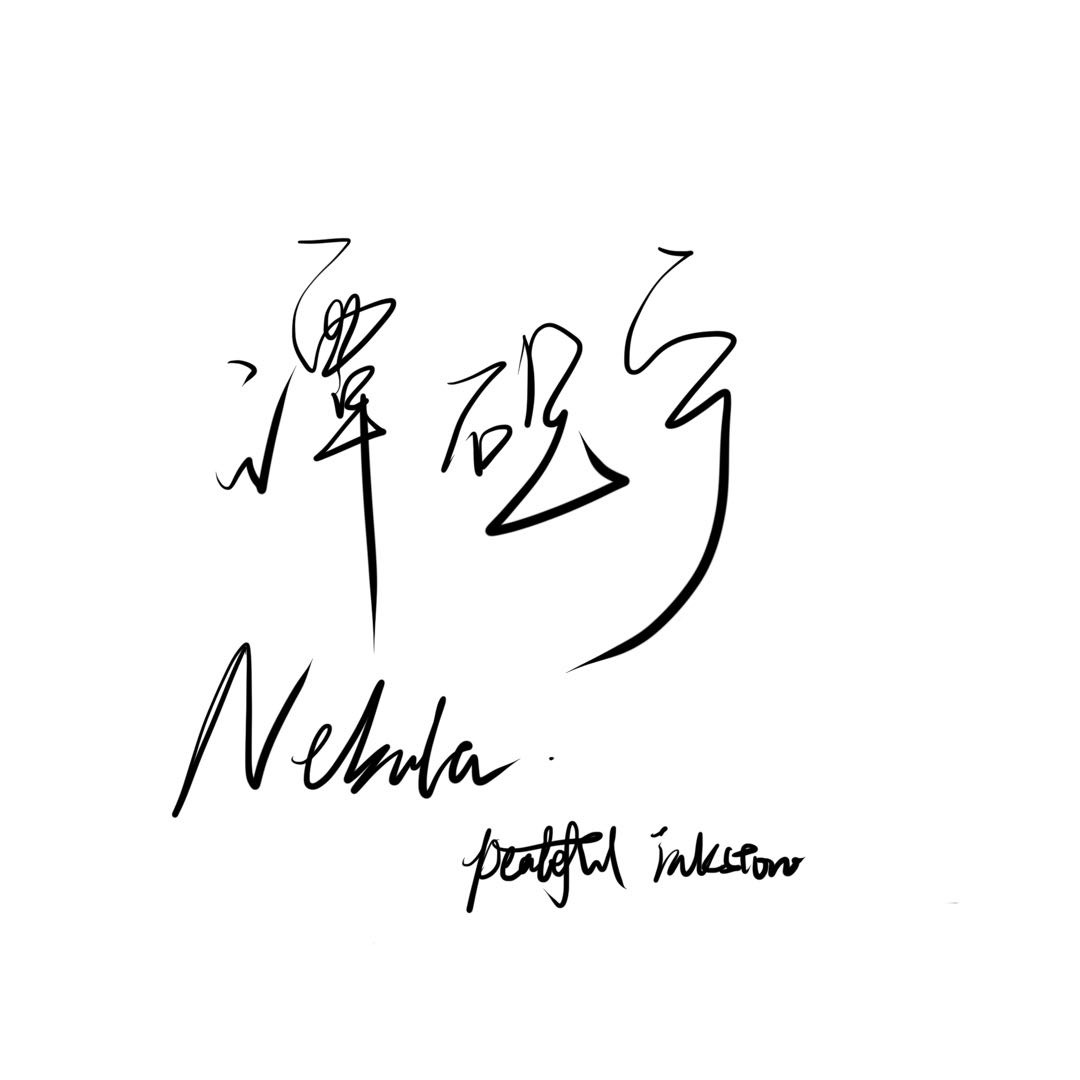 潭砚宁
Nebula.
peaceful inkstone